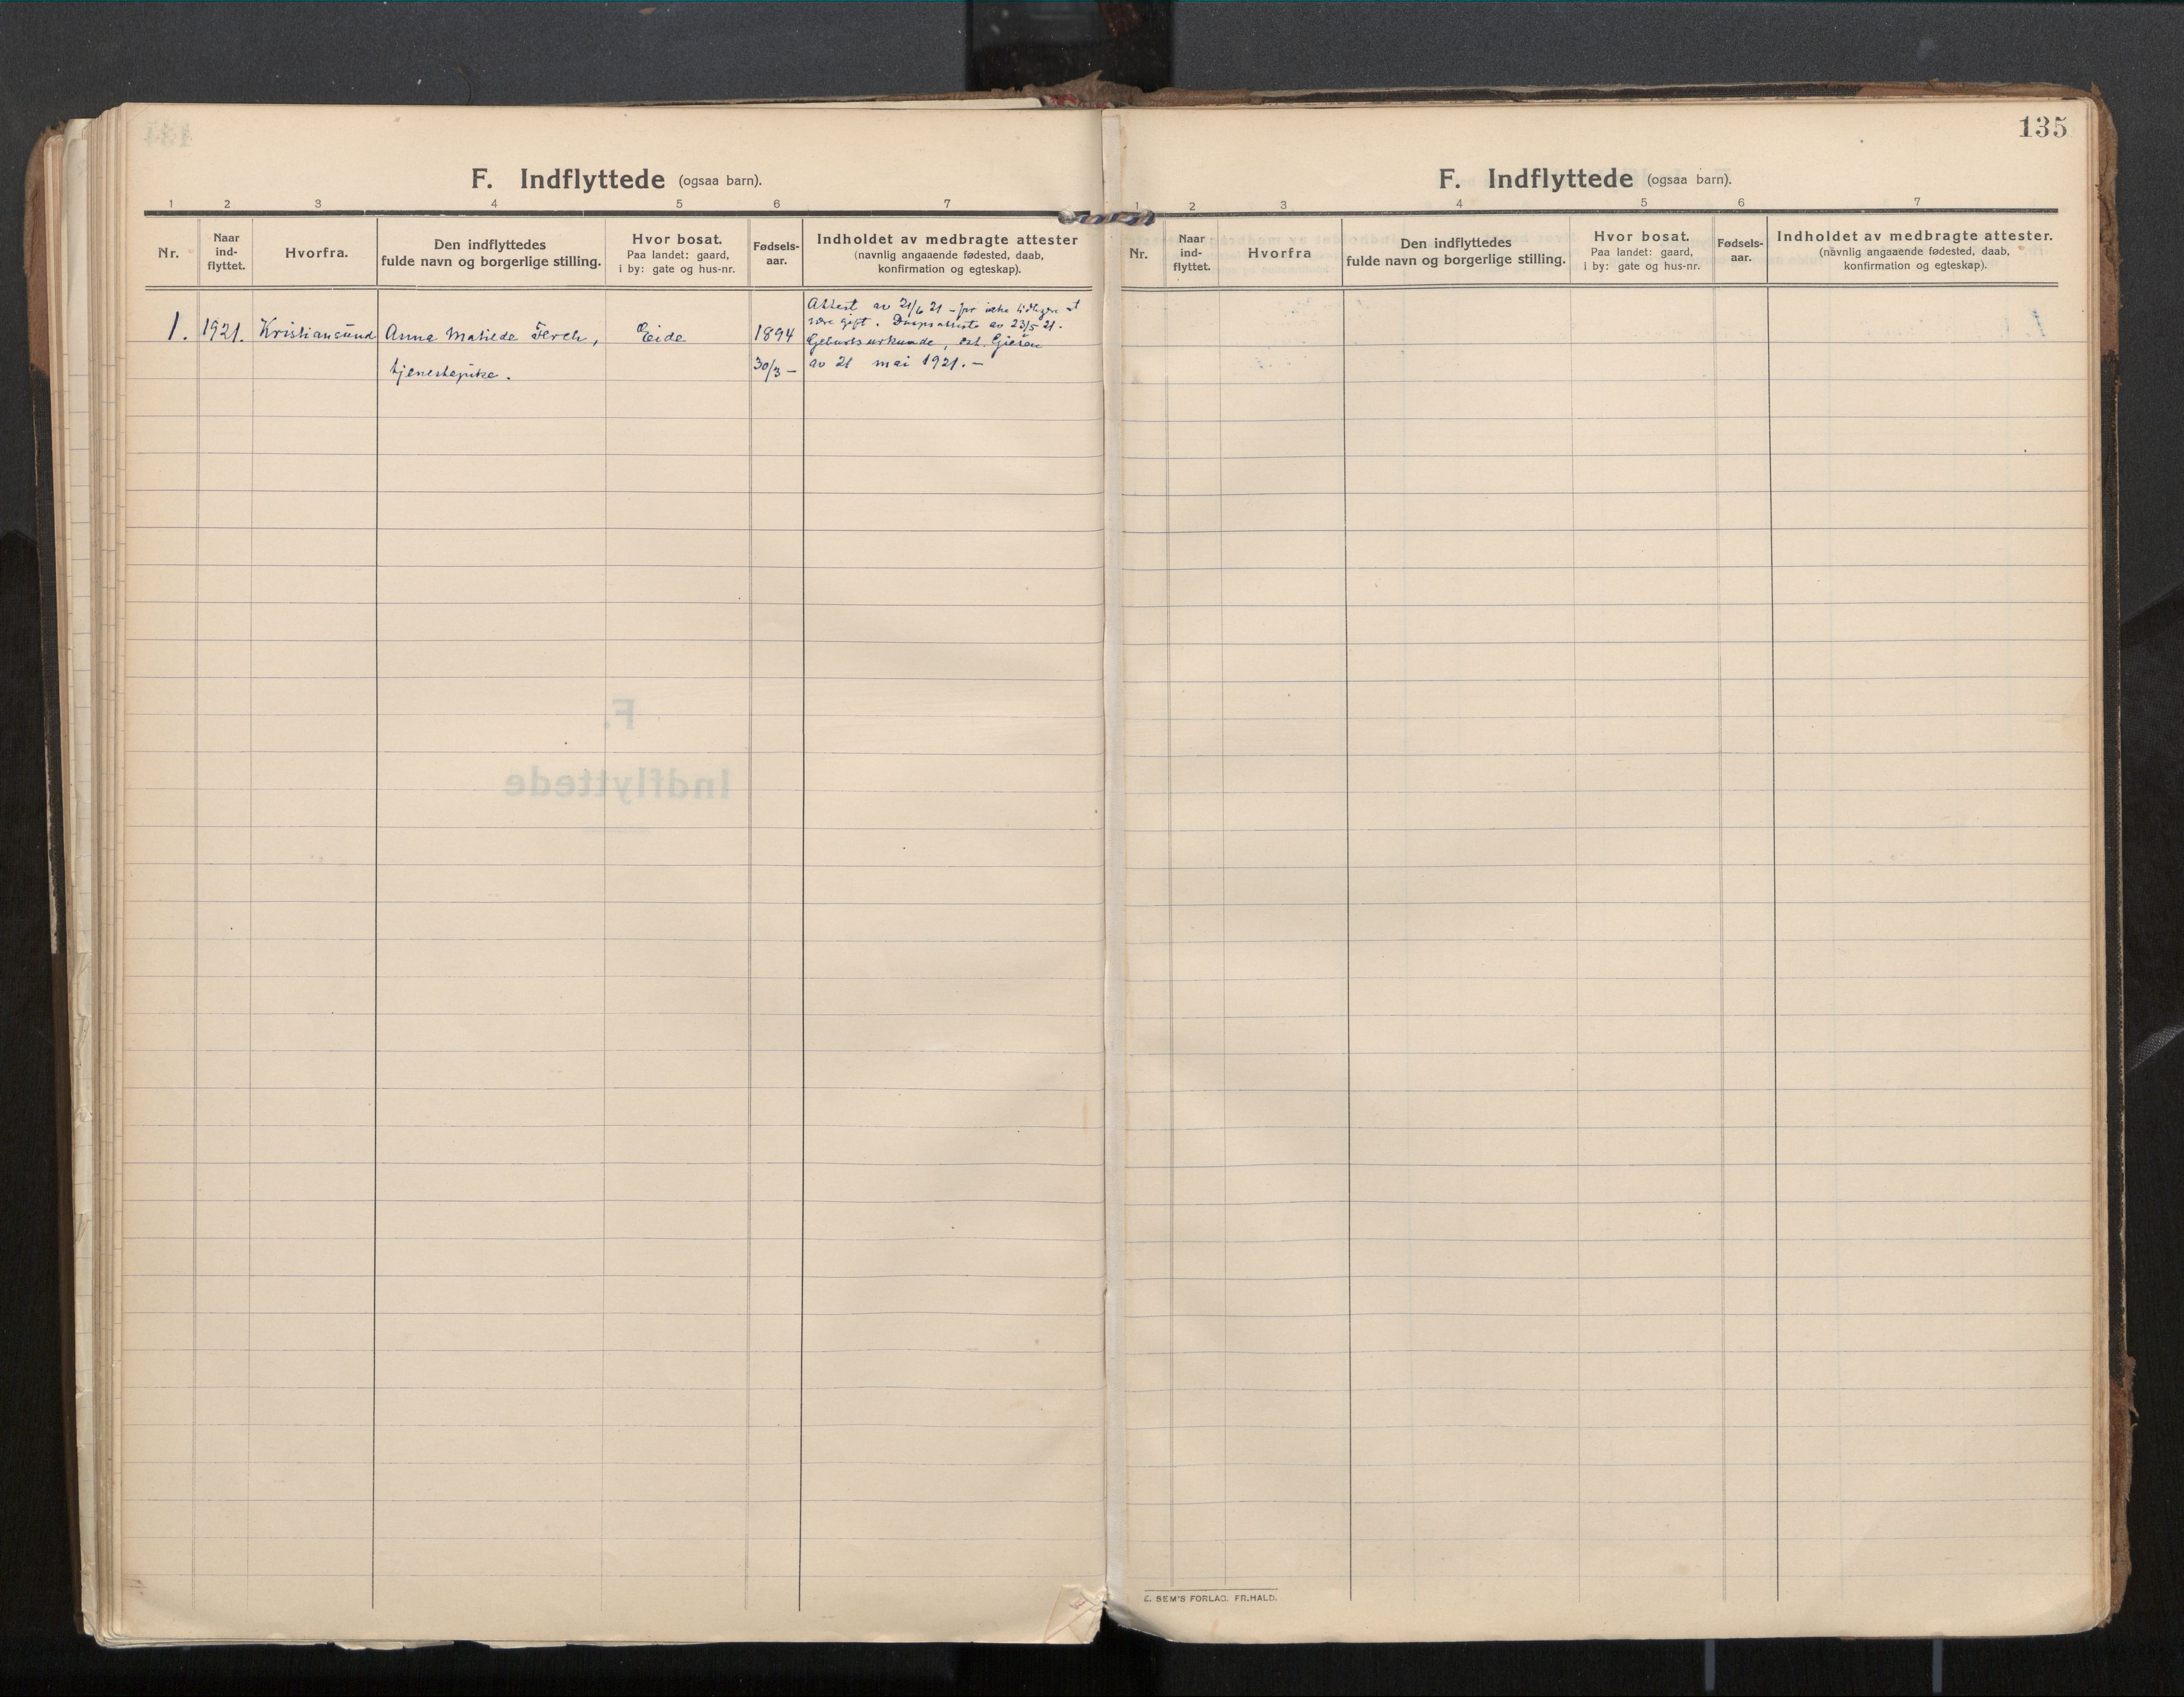 F. Indflyttede (ogsaa barn).
1 2 3 4 5 6 7
Nr.
Naar
ind-
flyttet.
Hvorfra.
Den indflyttedes
fulde navn og borgerlige stilling.
Hvor bosat.
Paa landet: gaard,
i by: gate og hus-nr.
Fødsels-
aar.
Indholdet av medbragte attester
(navnlig angaaende fødested, daab,
konfirmation og egteskap).
1.
1921.
Kristiansund
Anna Matilde Ferch,
tjenestepike.
Eide
1894
30/3 —
Attest av 21/6 21 - for ikke tidligere at
være gift. Daapsattest av 23/5 21.
Geburtsurkunde,
av 21 mai 1921. —
135
F. Indflyttede (ogsaa barn).
1 2 3 4 5 6 7
Nr.
Naar
ind-
flyttet.
Hvorfra
Den indflyttedes
fulde navn og borgerlige stilling.
Hvor bosat.
Paa landet: gaard,
i by: gate og hus-nr.
Fødsels-
aar.
Indholdet av medbragte attester.
(navnlig angaaende fødested, daab,
konfirmation og egteskap).
E. SEM'S FORLAG. FR.HALD.